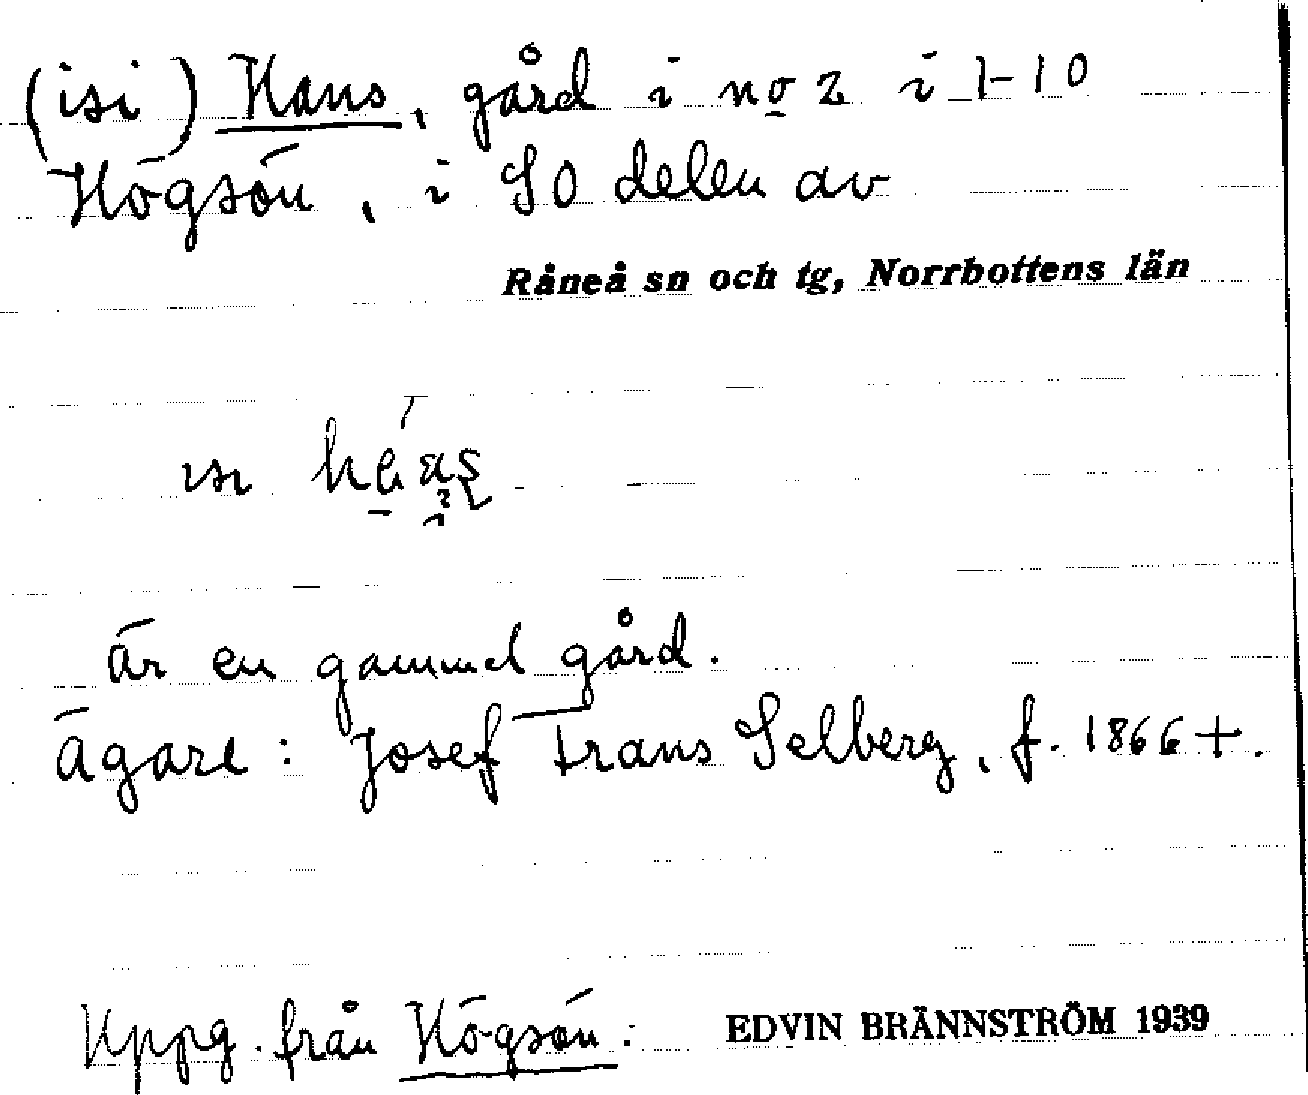 (isi) Hans, gård i no 2 i 1-10
Högsön, i SO delen av
Råneå sn och tg, Norrbottens län
isi
är en gammel gård.
Ägare: Josef Frans Selberg, f. 1866 +.
Uppg. från Högsön:
EDVIN BRÄNNSTRÖM 1939